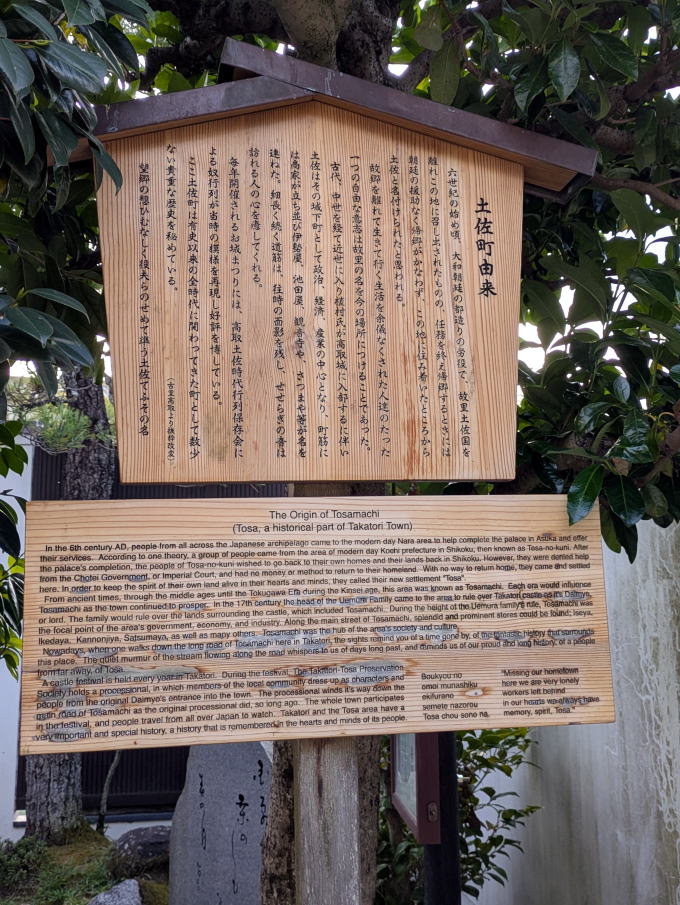 土佐町由来
六世紀の始め頃、大和朝廷の都造りの労役で、故里土佐国を
離れこの地に召し出されたものの、任務を終え帰郷するときには
朝廷の援助なく帰郷がかなわず、この地に住み着いたところから
土佐と名付けられたと思われる。
故郷を離れて生きて行く生活を余儀なくされた人達のたった
一つの自由な意志は故里の名を今の場所につけることであった。
古代、中世を経て近世に入り植村氏が高取城に入部するに伴い
土佐はその城下町として政治、経済、産業の中心となり、町筋に
は商家が立ち並び伊勢屋、池田屋、観音寺や、さつまや等が名を
連ねた。細長く続く道筋は、往時の面影を残し、せせらぎの音は
訪れる人の心を癒してくれる。
毎年開催されるお城まつりには、高取土佐時代行列保存会に
よる奴行列が当時の模様を再現し好評を博している。
ここ土佐町は有史以来の全時代に関わってきた町として数少
ない貴重な歴史を秘めている。
望郷の想ひむなしく役夫らのせめて準う土佐てふその名
The Origin of Tosamachi
(Tosa, a historical part of Takatori Town)
In the 6th century AD, people from all across the Japanese archipelago came to the modern day Nara area to help complete the palace in Asuka and offer
their services. According to one theory, a group of people came from the area of modern day Kochi prefecture in Shikoku, then known as Tosa-no-kuni. After
the palace's completion, the people of Tosa-no-kuni wished to go back to their own homes and their lands back in Shikoku. However, they were denied help
from the Chotei Government, or Imperial Court, and had no money or method to return to their homeland. With no way to return home, they came and settled
here. In order to keep the spirit of their own land alive in their hearts and minds, they called their new settlement "Tosa".
From ancient times, through the middle ages until the Tokugawa Era during the Kinsei age, this area was known as Tosamachi. Each era would influence
Tosamachi as the town continued to prosper. In the 17th century the head of the Uemura Family came to the area to rule over Takatori castle as it's Daimyo,
or lord. The family would rule over the lands surrounding the castle, which included Tosamachi. During the height of the Uemura family's rule, Tosamachi was
the focal point of the area's government, economy, and industry. Along the main street of Tosamachi, splendid and prominent stores could be found; Iseya,
Ikedaya, Kannonjiya, Satsumaya, as well as many others. Tosamachi was the hub of the area's society and culture.
Nowadays, when one walks down the long road of Tosamachi here in Takatori, the sights remind you of a time gone by, of the fantastic history that surrounds
this place. The quiet murmur of the stream flowing along the road whispers to us of days long past, and reminds us of our proud and long history, of a people
from far away, of Tosa.
A castle festival is held every year in Takatori. During the festival, The Takatori-Tosa Preservation
Society holds a processional, in which members of the local community dress up as characters and
people from the original Daimyo's entrance into the town. The processional winds it's way down the
main road of Tosamachi as the original processional did, so long ago. The whole town participates
in the festival, and people travel from all over Japan to watch. Takatori and the Tosa area have a
very important and special history, a history that is remembered in the hearts and minds of its people.
Boukyou no
omoi munashiku
ekifurano
semete nazorou
Tosa chou sono na
"Missing our hometown
here we are very lonely
workers left behind
in our hearts we always have
memory, spirit, Tosa."